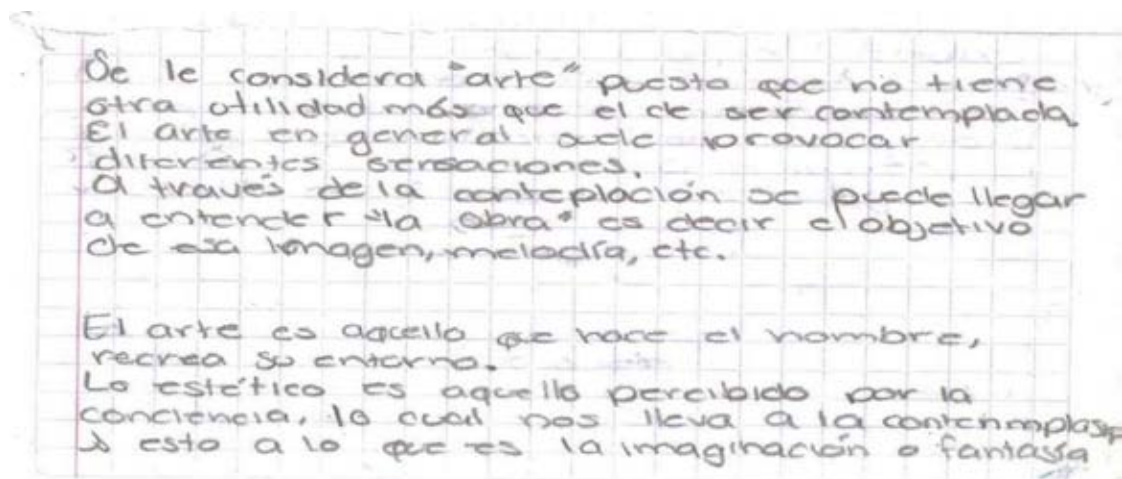 Se le considera "arte" puesto que no tiene
otra utilidad más que el de ser contemplada
El arte en general suele provocar
diferentes sensaciones.
a través de la conteplación se puede llegar
a entender "la obra" es decir el objetivo
de esa imagen, melodía, etc.
El arte es aquello que hace el hombre,
recrea su entorno.
Lo estético es aquello percibido por la
conciencia, lo cual nos lleva a la
esto a lo que es la imaginación o fantasía